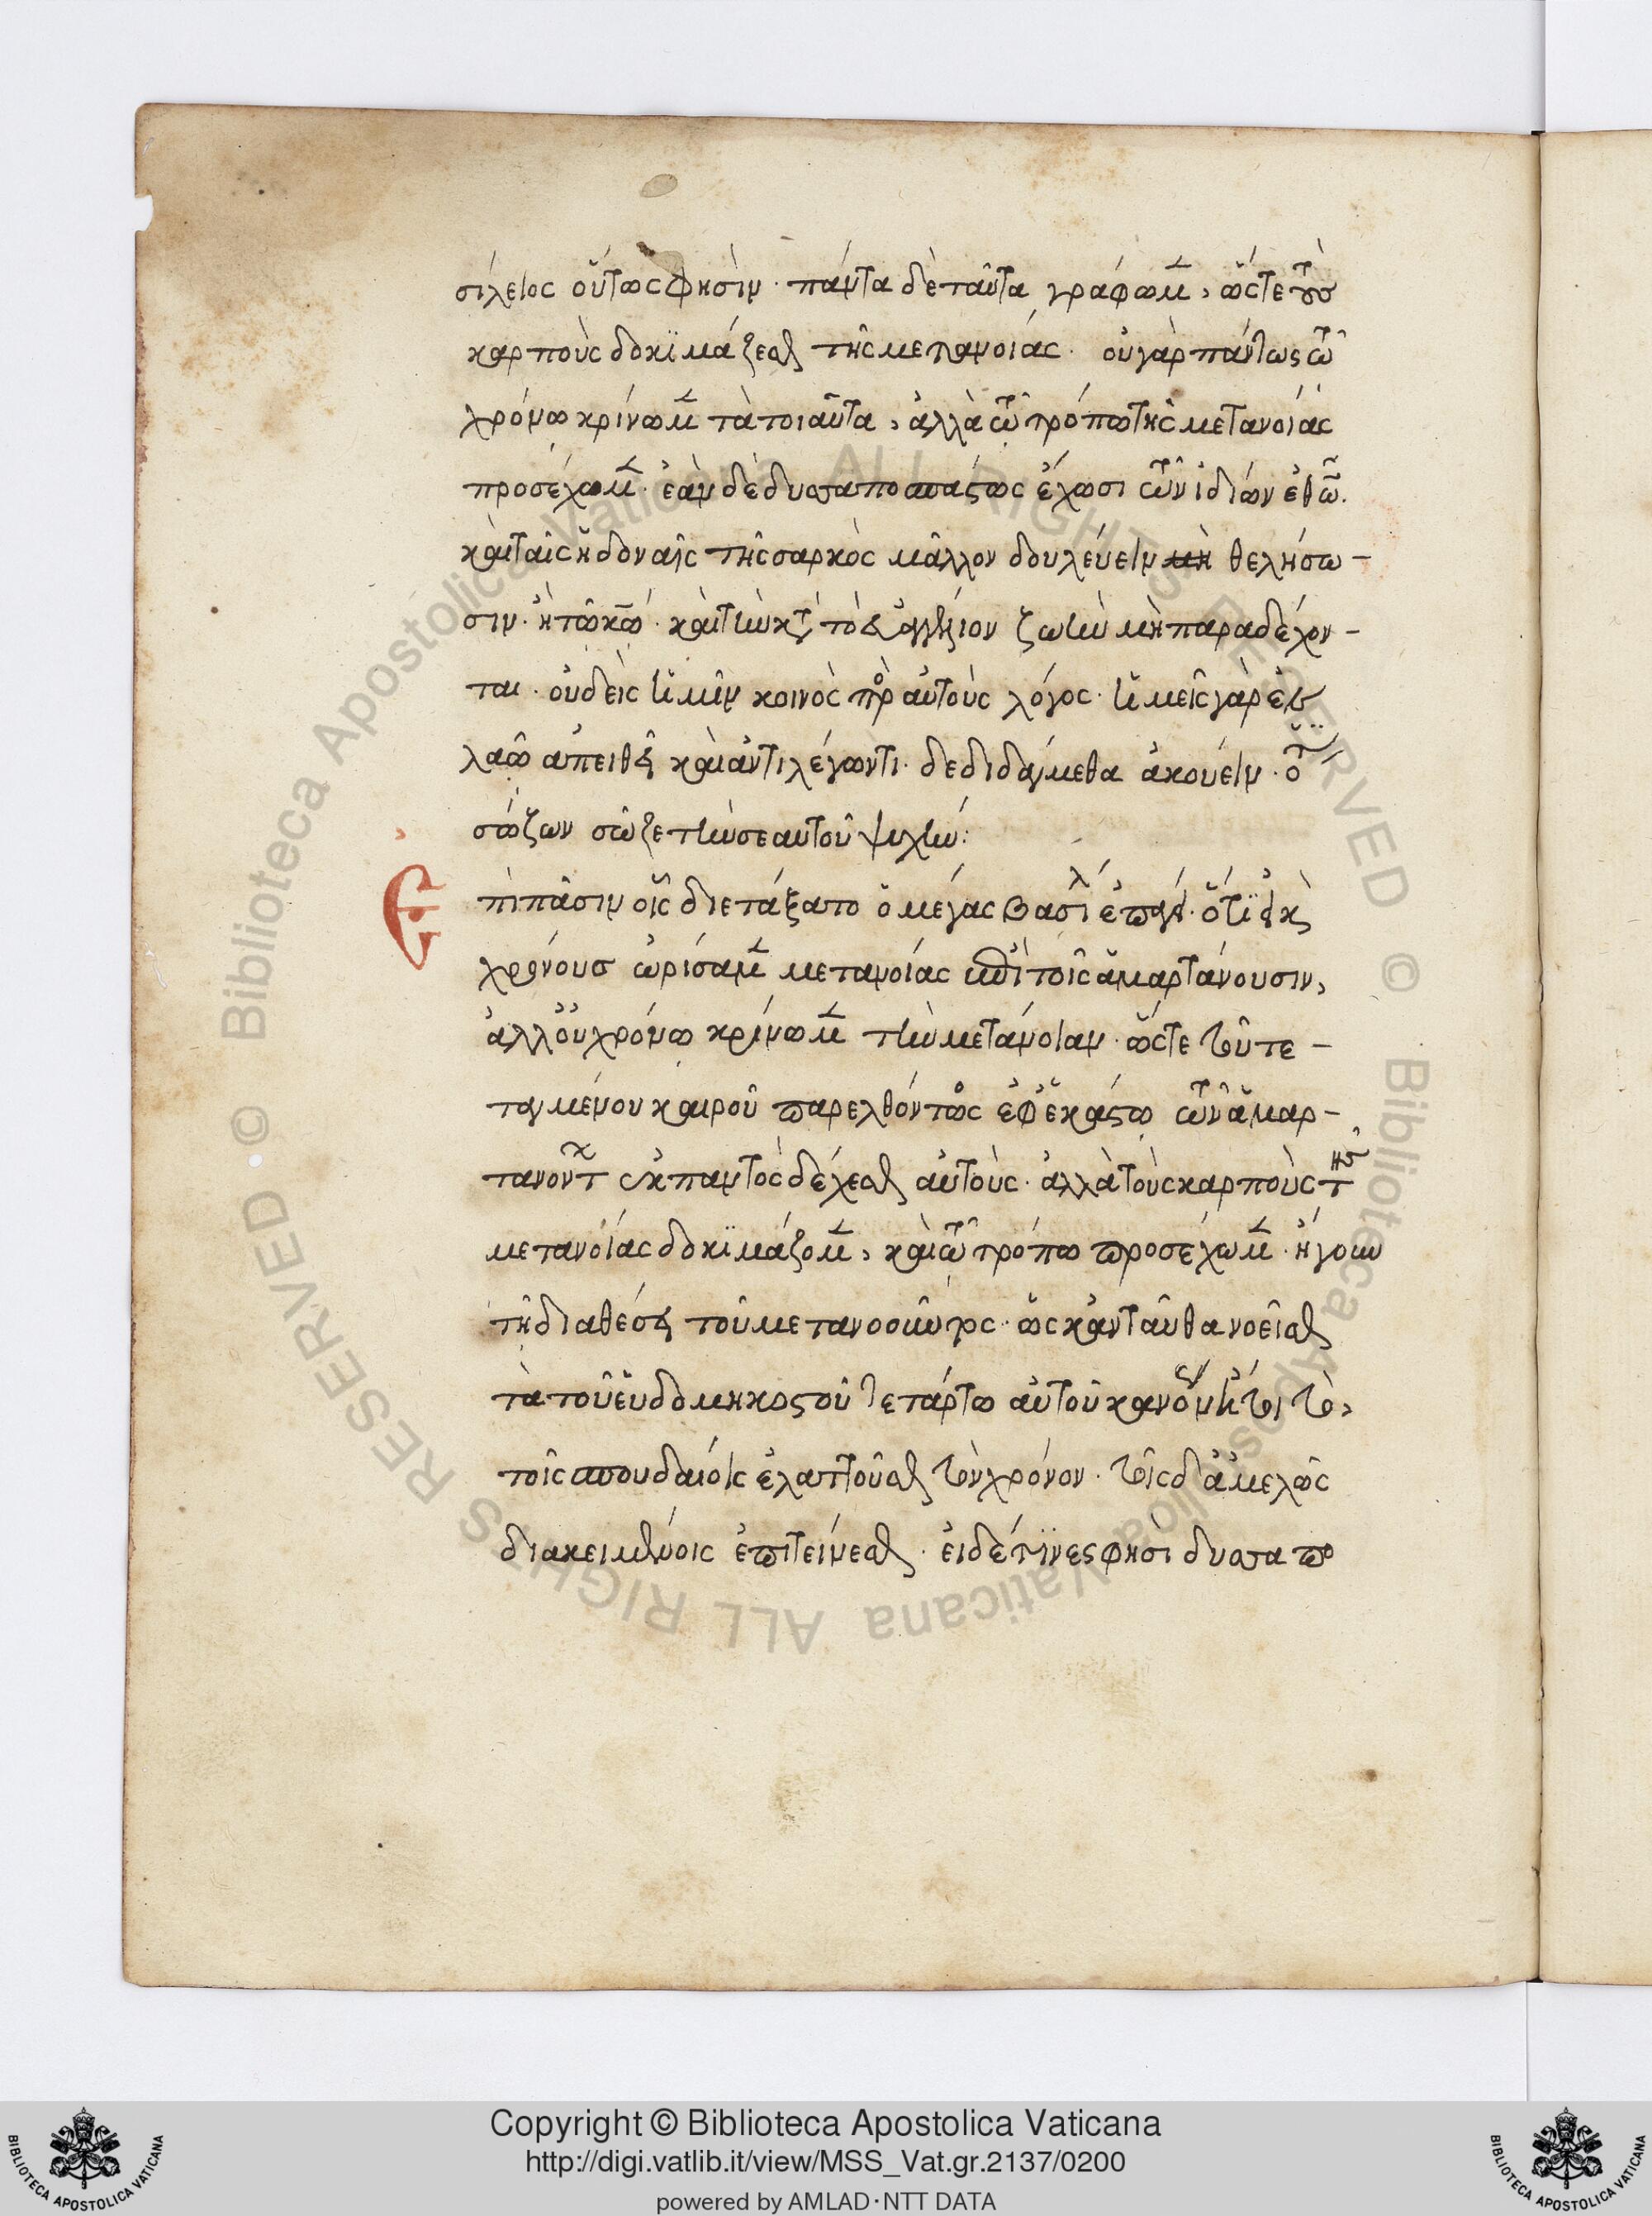 σίλειος οὕτως φησὶν· πάντα δὲ ταῦτα γράφωμεν, ὥστε τοὺς
καρποὺς δοκιμάζεσθαι τῆς μετανοίας· οὐ γὰρ πάντως τῶ
χρόνω κρίνωμεν τὰ τοιαῦτα, ἀλλὰ τῶ τρόπω τῆς μετανοίας
προσέχωμεν· ἐὰν δὲ δυσαποσπάστως ἔχωσι τῶν ἰδίων ἐθῶν·
καὶ ταῖς ἡδοναῖς τῆς σαρκὸς μᾶλλον δουλεύειν μὴ θελήσω-
σιν· ἢ τῶ κῶ· καὶ τὴν κατὰ τὸ εὐαγγέλιον ζωὴν μὴ παραδέχον-
ται· οὐδεὶς ἡμῖν κοινὸς πρὸς αὐτοὺς λόγος· ἡμεῖς γὰρ ἐν
λαῶ ἀπειθεῖ καὶ ἀντιλέγωντι· δεδιδάγμεθα ἀκούειν· ὅτι
σώζων σῶζε τὴν σεαυτοῦ ψυχήν:
Ἐπὶ πᾶσιν οἷς διετάξατο ὁ μέγας βασίλειος ἐπάγει· ὅτι εἰ καὶ
χρόνους ὡρίσαμεν μετανοίας ἐπὶ τοῖς ἁμαρτάνουσιν,
ἀλλ' οὐ χρόνω κρίνωμεν τὴν μετάνοιαν· ὥστε τοῦ τε-
ταγμένου καιροῦ παρελθόντος ἐφ' ἑκάστω τῶν ἁμαρ-
τανόντων ἐκ παντὸς δέχεσθαι αὐτούς· ἀλλὰ τοὺς καρποὺς τῆς
μετανοίας δοκιμάζομεν, καὶ τῶ τρόπω προσέχωμεν· ἤγουν
τῆ διαθέσει τοῦ μετανοοῦντος· ὡς κἀνταῦθα νοεῖσθαι
τὰ τοῦ ἑυδομηκοστοῦ τετάρτω αὐτοῦ κανόνος ἤτοι τὸ,
τοῖς σπουδαίοις ἐλαττοῦσθαι τὸν χρόνον· τοῖς δ' ἀμελῶς
διακειμένοις ἐπιτείνεσθαι· εἰ δέ τινες φησὶ δυσαπο
Copyright © Biblioteca Apostolica Vaticana
http://digi.vatlib.it/view/MSS_Vat.gr.2137/0200
powered by AMLAD·NTT DATA